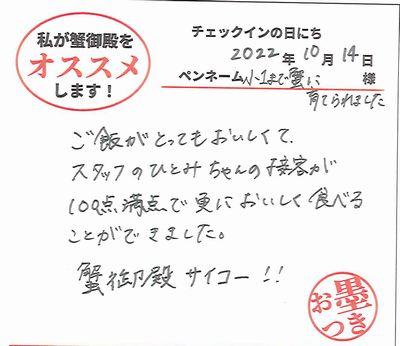 私が蟹御殿を
オススメ
します!
チェックインの日にち
2022年10月14日
ペンネーム 小1まで蟹に
育てられました 様
ご飯がとってもおいしくて、
スタッフのひとみちゃんの接客が
100点満点で更においしく食べる
ことができました。
蟹御殿サイコー!!
お墨つき